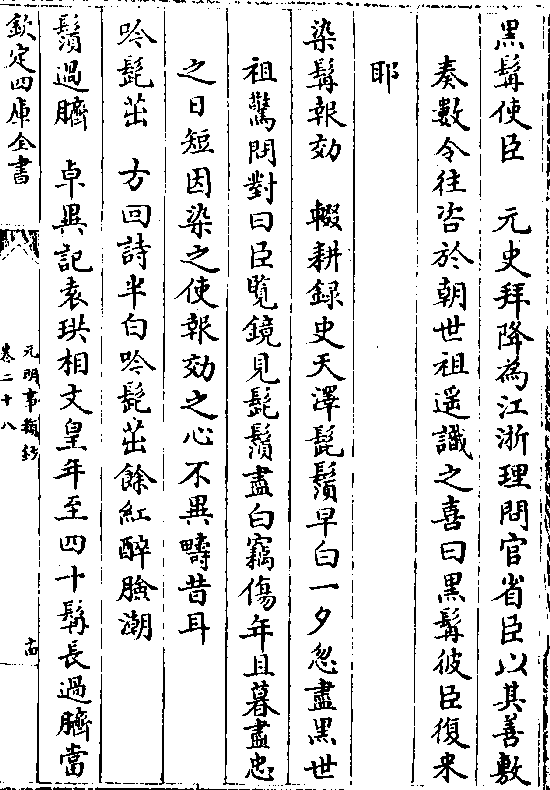 黑髯使臣　元史拜降為江浙理問官省臣以其善敷
奏數令往咨於朝世祖遥識之喜曰黑髯彼臣復来
耶
染髯報効　輟耕録史天澤髭鬚早白一夕忽盡黑世
祖驚問對曰臣覽鏡見髭鬚盡白竊傷年且暮盡忠
之日短因染之使報効之心不異疇昔耳
吟髭茁　方回詩半白吟髭茁餘紅醉臉潮
鬚過臍　卓異記袁珙相文皇年至四十髯長過臍當
欽定四庫全書
元明事類鈔
卷二十八
十四